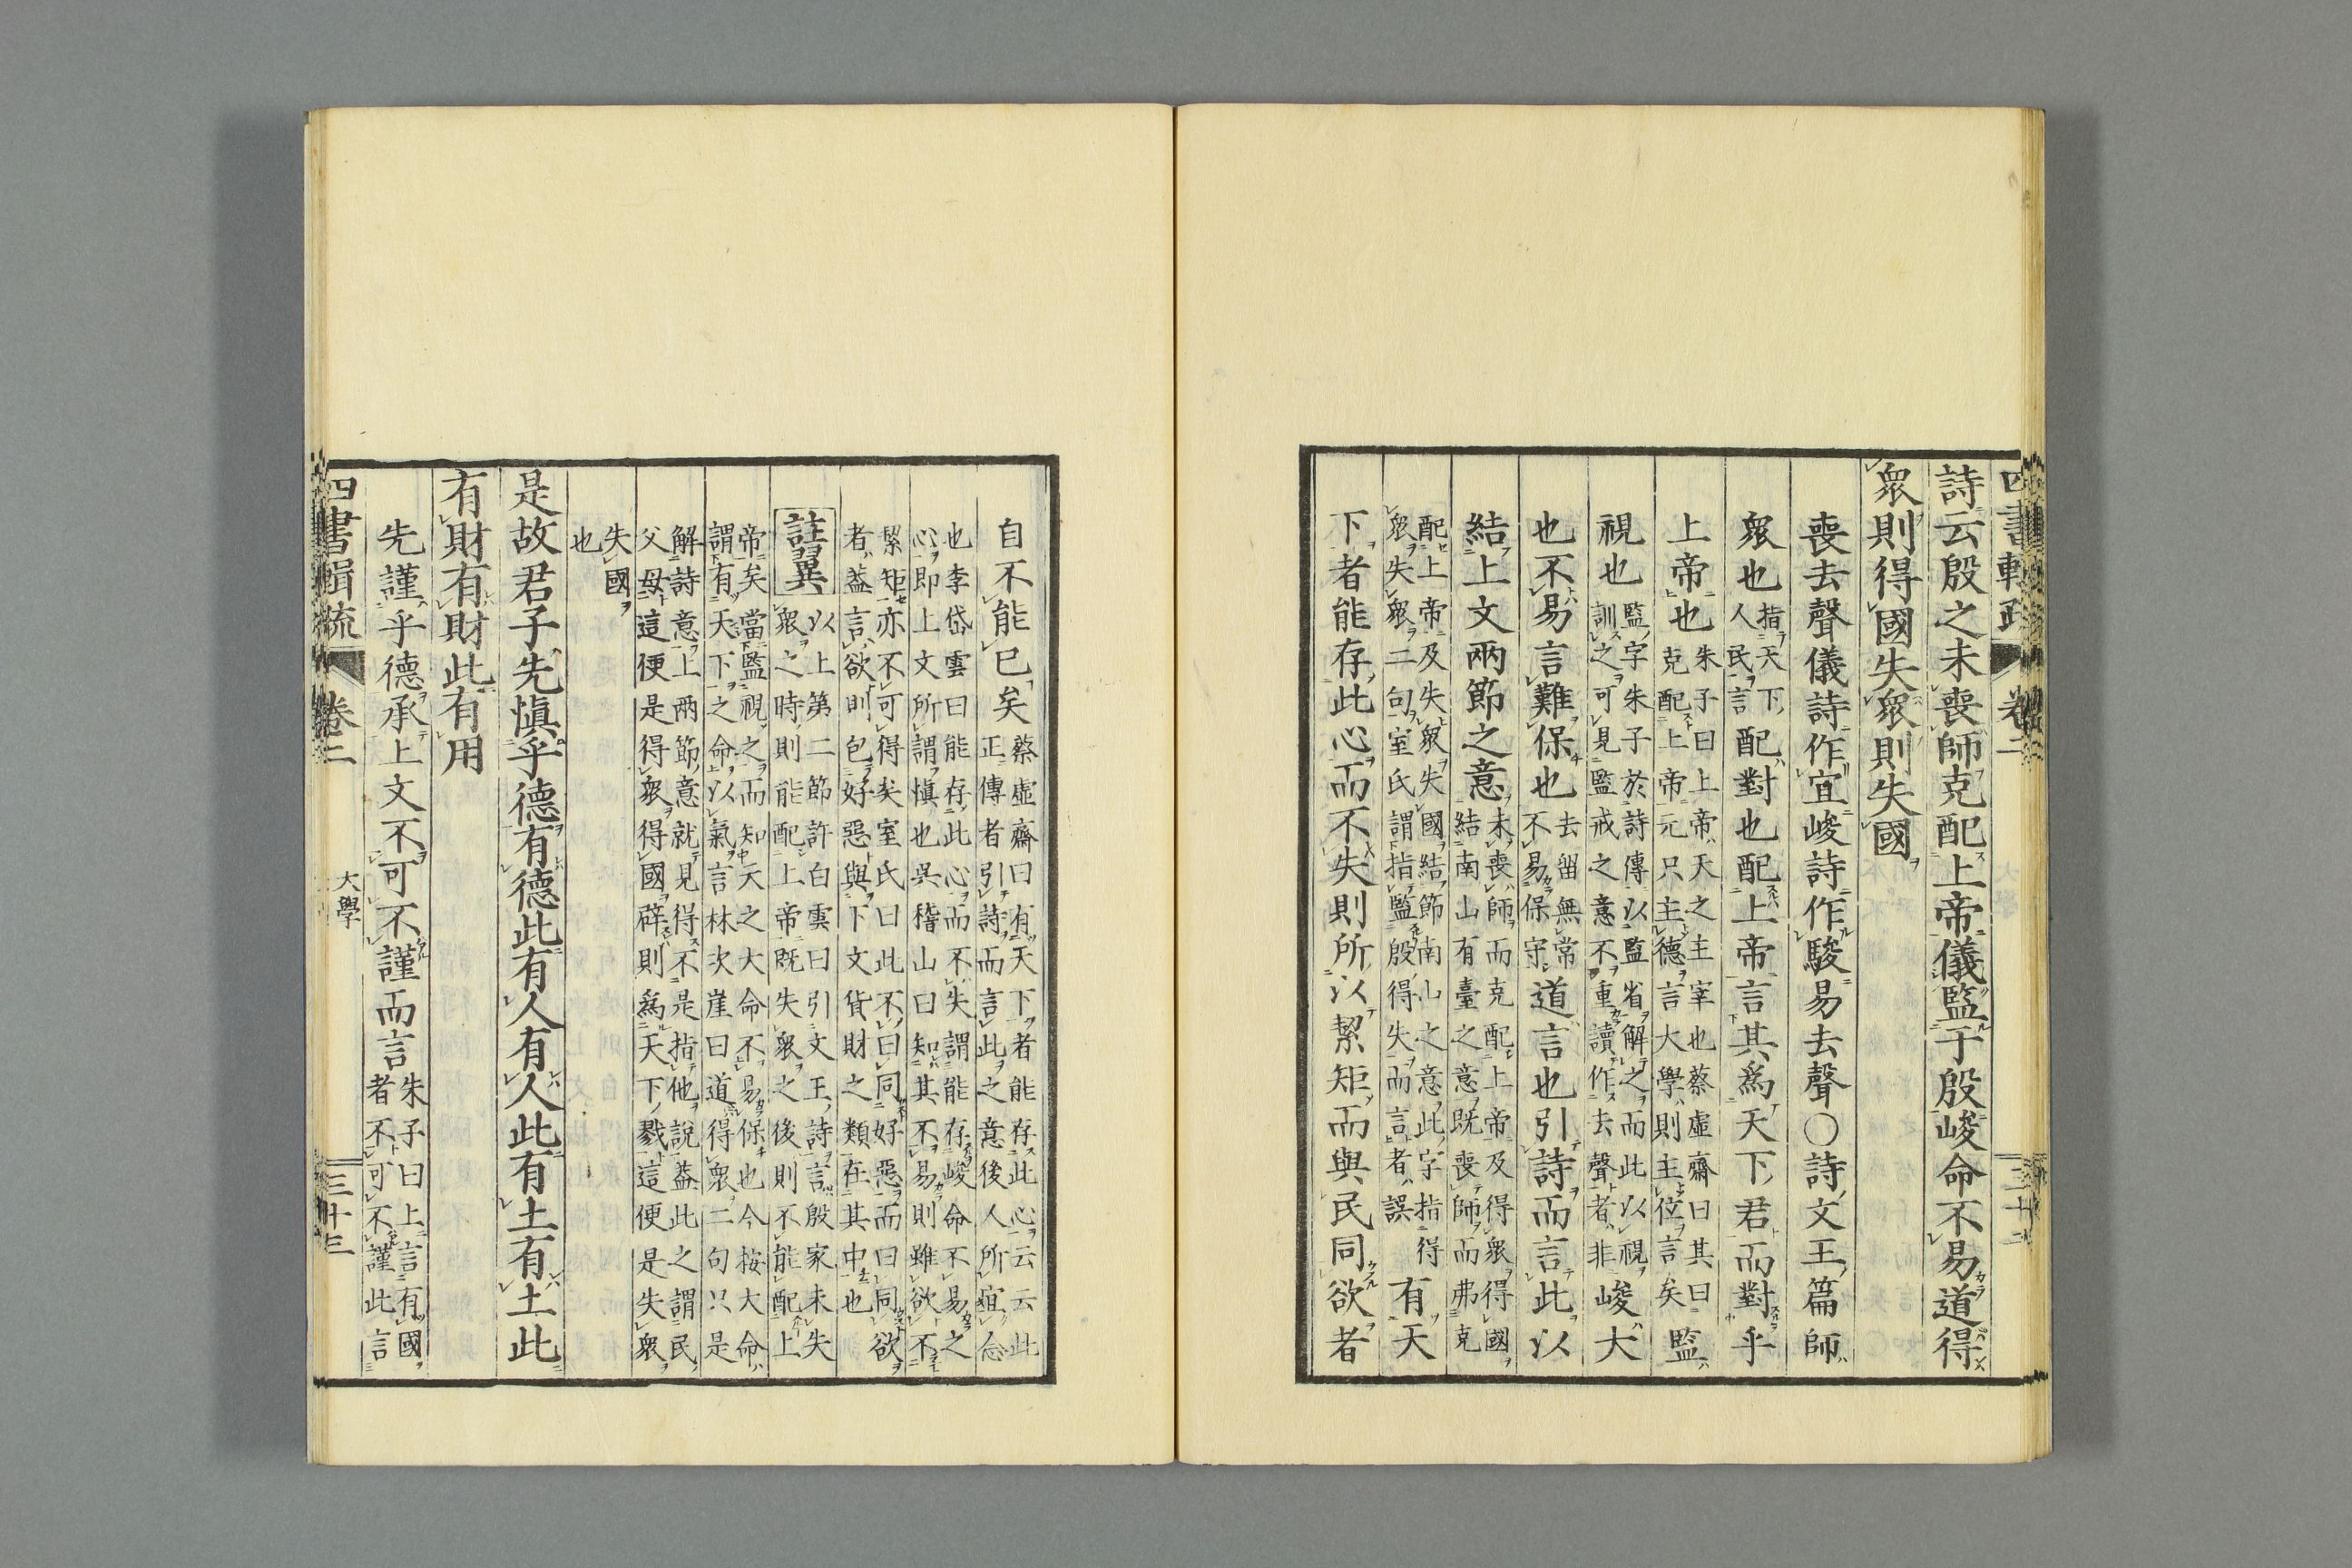 四書輯疏 卷二 三十二
詩云殷之未喪師克配上帝儀監于殷峻命不易道得
衆則得國失衆則失國
喪去聲儀詩作宜峻詩作駿易去聲○詩文王篇師
衆也指天下人民言配對也配上帝言其爲天下君而對乎
上帝也朱子曰上帝天之主宰也蔡虛齋曰其曰克配上帝元只主德言大學則主位言矣監
視也監字朱子於詩傳以監省解之而此以視訓之可見監戒之意不重讀作去聲者非峻大
也不易言難保也去留無常不易保守道言也引詩而言此以
結上文兩節之意未喪師而克配上帝及得衆得國結南山有臺之意既喪師而弗克
配上帝及失衆失國結節南山之意此字指得衆失衆二句室氏謂指監殷得失而言者誤有天
下者能存此心而不失則所以絜矩而與民同欲者
自不能已矣蔡虛齋曰有天下者能存此心云云此正傳者引詩而言此之意後人所宜念
也李岱雲曰能存此心而不失謂能存峻命不易之心即上文所謂愼也吳稽山曰知其不易則雖欲不
絜矩亦不可得矣室氏曰此不曰同好惡而曰同欲者蓋言欲則包好惡與下文貨財之類在其中也
註翼以上第二節許白雲曰引文王詩言殷家未失衆之時則能配上帝既失衆之後則不能配上
帝矣當監視之而知天之大命不易保也今按大命謂有天下之命以氣言林次崖曰道得衆二句只是
解詩意上兩節意就見得不是指他說蓋此之謂民父母這便是得衆得國辟則爲天下戮這便是失衆
失國也
是故君子先愼乎德有德此有人有人此有土有土此
有財有財此有用
先謹乎德承上文不可不謹而言朱子曰上言有國者不可不謹此言
四書輯疏 卷二 大學 三十三